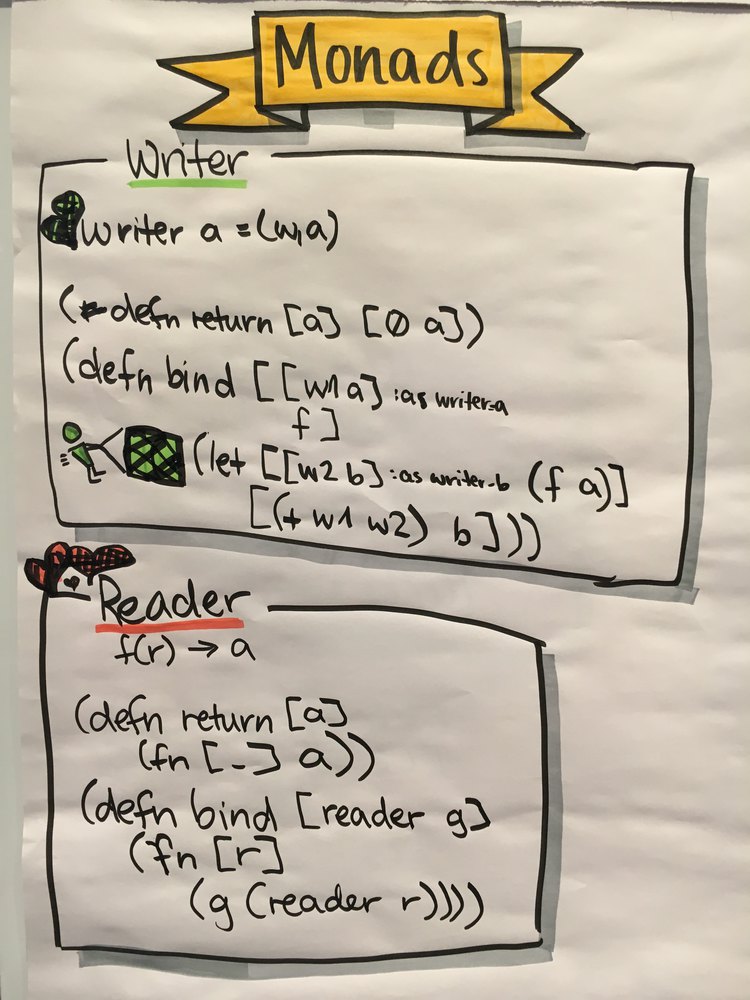 Monads
Writer
writer a = (w,a)
(defn return [a] [∅ a])
(defn bind [[w1 a] :as writer-a
f]
(let [[w2 b] :as writer-b (f a)]
[(+ w1 w2) b]))
Reader
f(r) → a
(defn return [a]
(fn [_] a))
(defn bind [reader g]
(fn [r]
(g (reader r))))